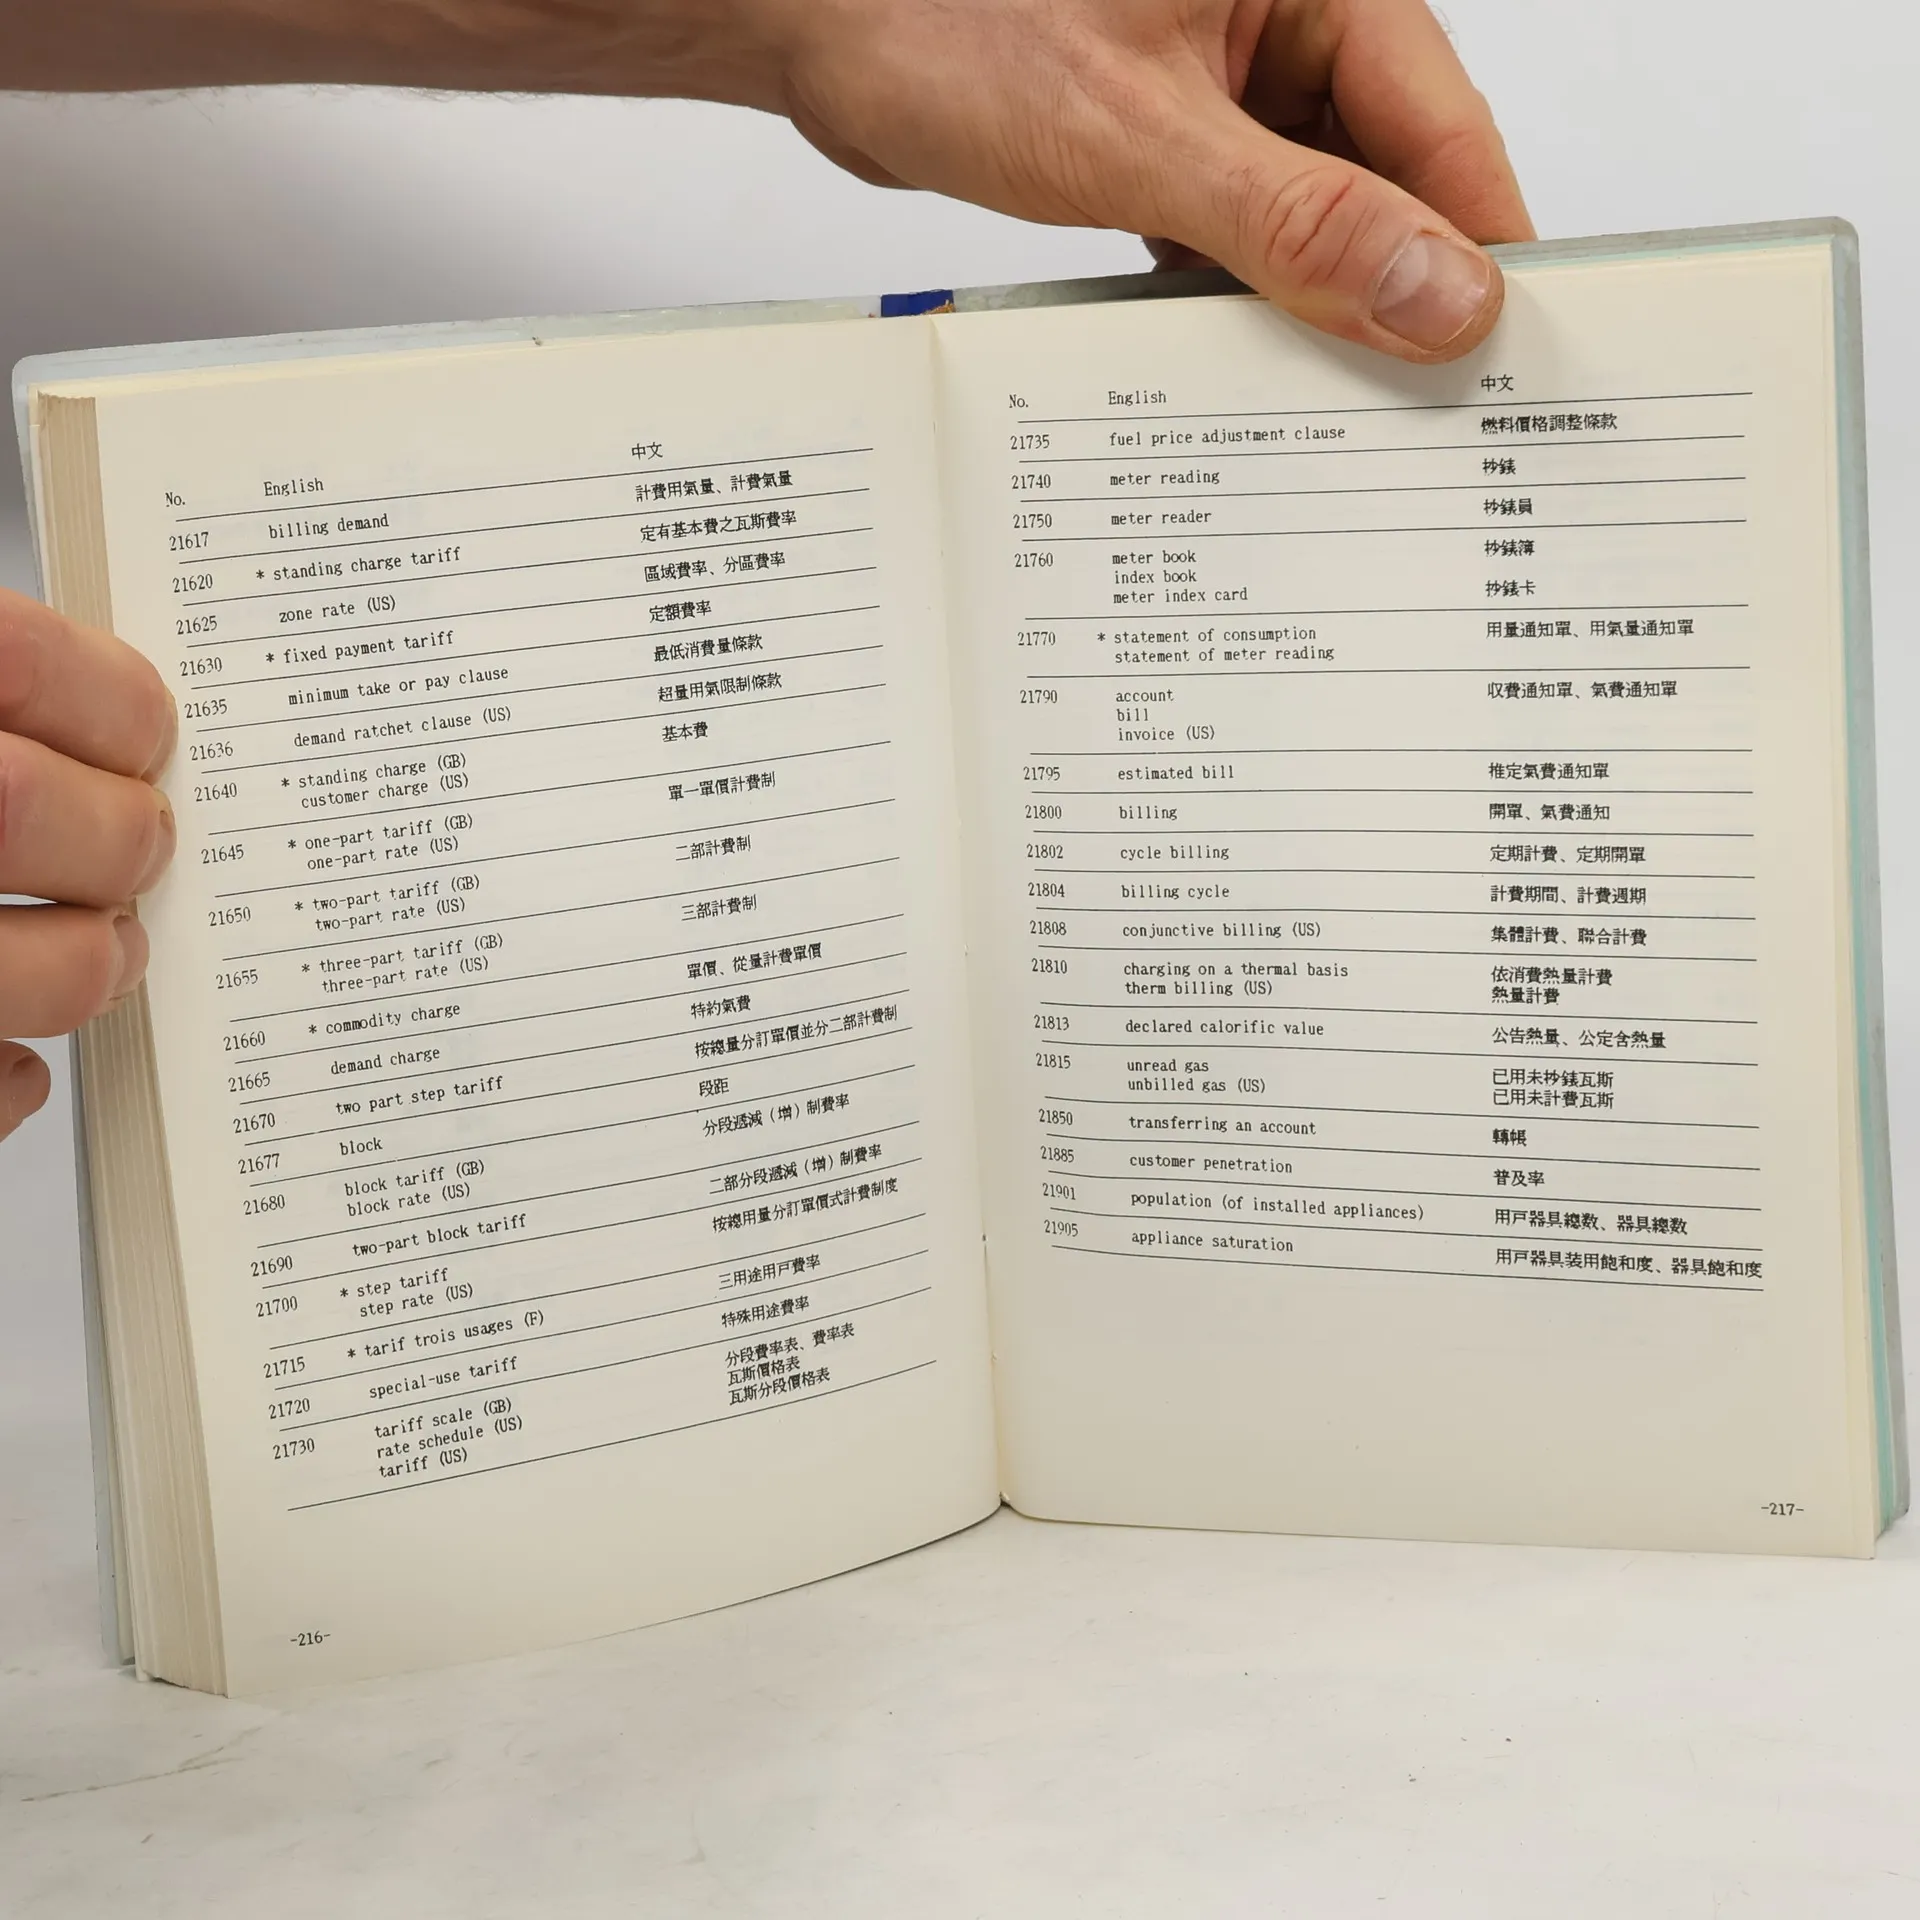 No. English 中文
21617 billing demand 計費用氣量、計費氣量
21620 * standing charge tariff 定有基本費之瓦斯費率
21625 zone rate (US) 區域費率、分區費率
21630 * fixed payment tariff 定額費率
21635 minimum take or pay clause 最低消費量條款
21636 demand ratchet clause (US) 超量用氣限制條款
21640 * standing charge (GB) 基本費
customer charge (US)
21645 * one-part tariff (GB) 單一單價計費制
one-part rate (US)
21650 * two-part tariff (GB) 二部計費制
two-part rate (US)
21655 * three-part tariff (GB) 三部計費制
three-part rate (US)
21660 * commodity charge 單價、從量計費單價
21665 demand charge 特約氣費
21670 two part step tariff 按總量分訂單價並分二部計費制
21677 block 段距
21680 block tariff (GB) 分段遞減(增)制費率
block rate (US)
21690 two-part block tariff 二部分段遞減(增)制費率
21700 * step tariff 按總用量分訂單價式計費制度
step rate (US)
21715 * tarif trois usages (F) 三用途用戶費率
21720 special-use tariff 特殊用途費率
21730 tariff scale (GB) 分段費率表、費率表
rate schedule (US) 瓦斯價格表
tariff (US) 瓦斯分段價格表
-216-
No. English 中文
21735 fuel price adjustment clause 燃料價格調整條款
21740 meter reading 抄錶
21750 meter reader 抄錶員
21760 meter book 抄錶簿
index book
meter index card 抄錶卡
21770 * statement of consumption 用量通知單、用氣量通知單
statement of meter reading
21790 account 收費通知單、氣費通知單
bill
invoice (US)
21795 estimated bill 推定氣費通知單
21800 billing 開單、氣費通知
21802 cycle billing 定期計費、定期開單
21804 billing cycle 計費期間、計費週期
21808 conjunctive billing (US) 集體計費、聯合計費
21810 charging on a thermal basis 依消費熱量計費
therm billing (US) 熱量計費
21813 declared calorific value 公告熱量、公定含熱量
21815 unread gas 已用未抄錶瓦斯
unbilled gas (US) 已用未計費瓦斯
21850 transferring an account 轉帳
21885 customer penetration 普及率
21901 population (of installed appliances) 用戶器具總數、器具總數
21905 appliance saturation 用戶器具裝用飽和度、器具飽和度
-217-